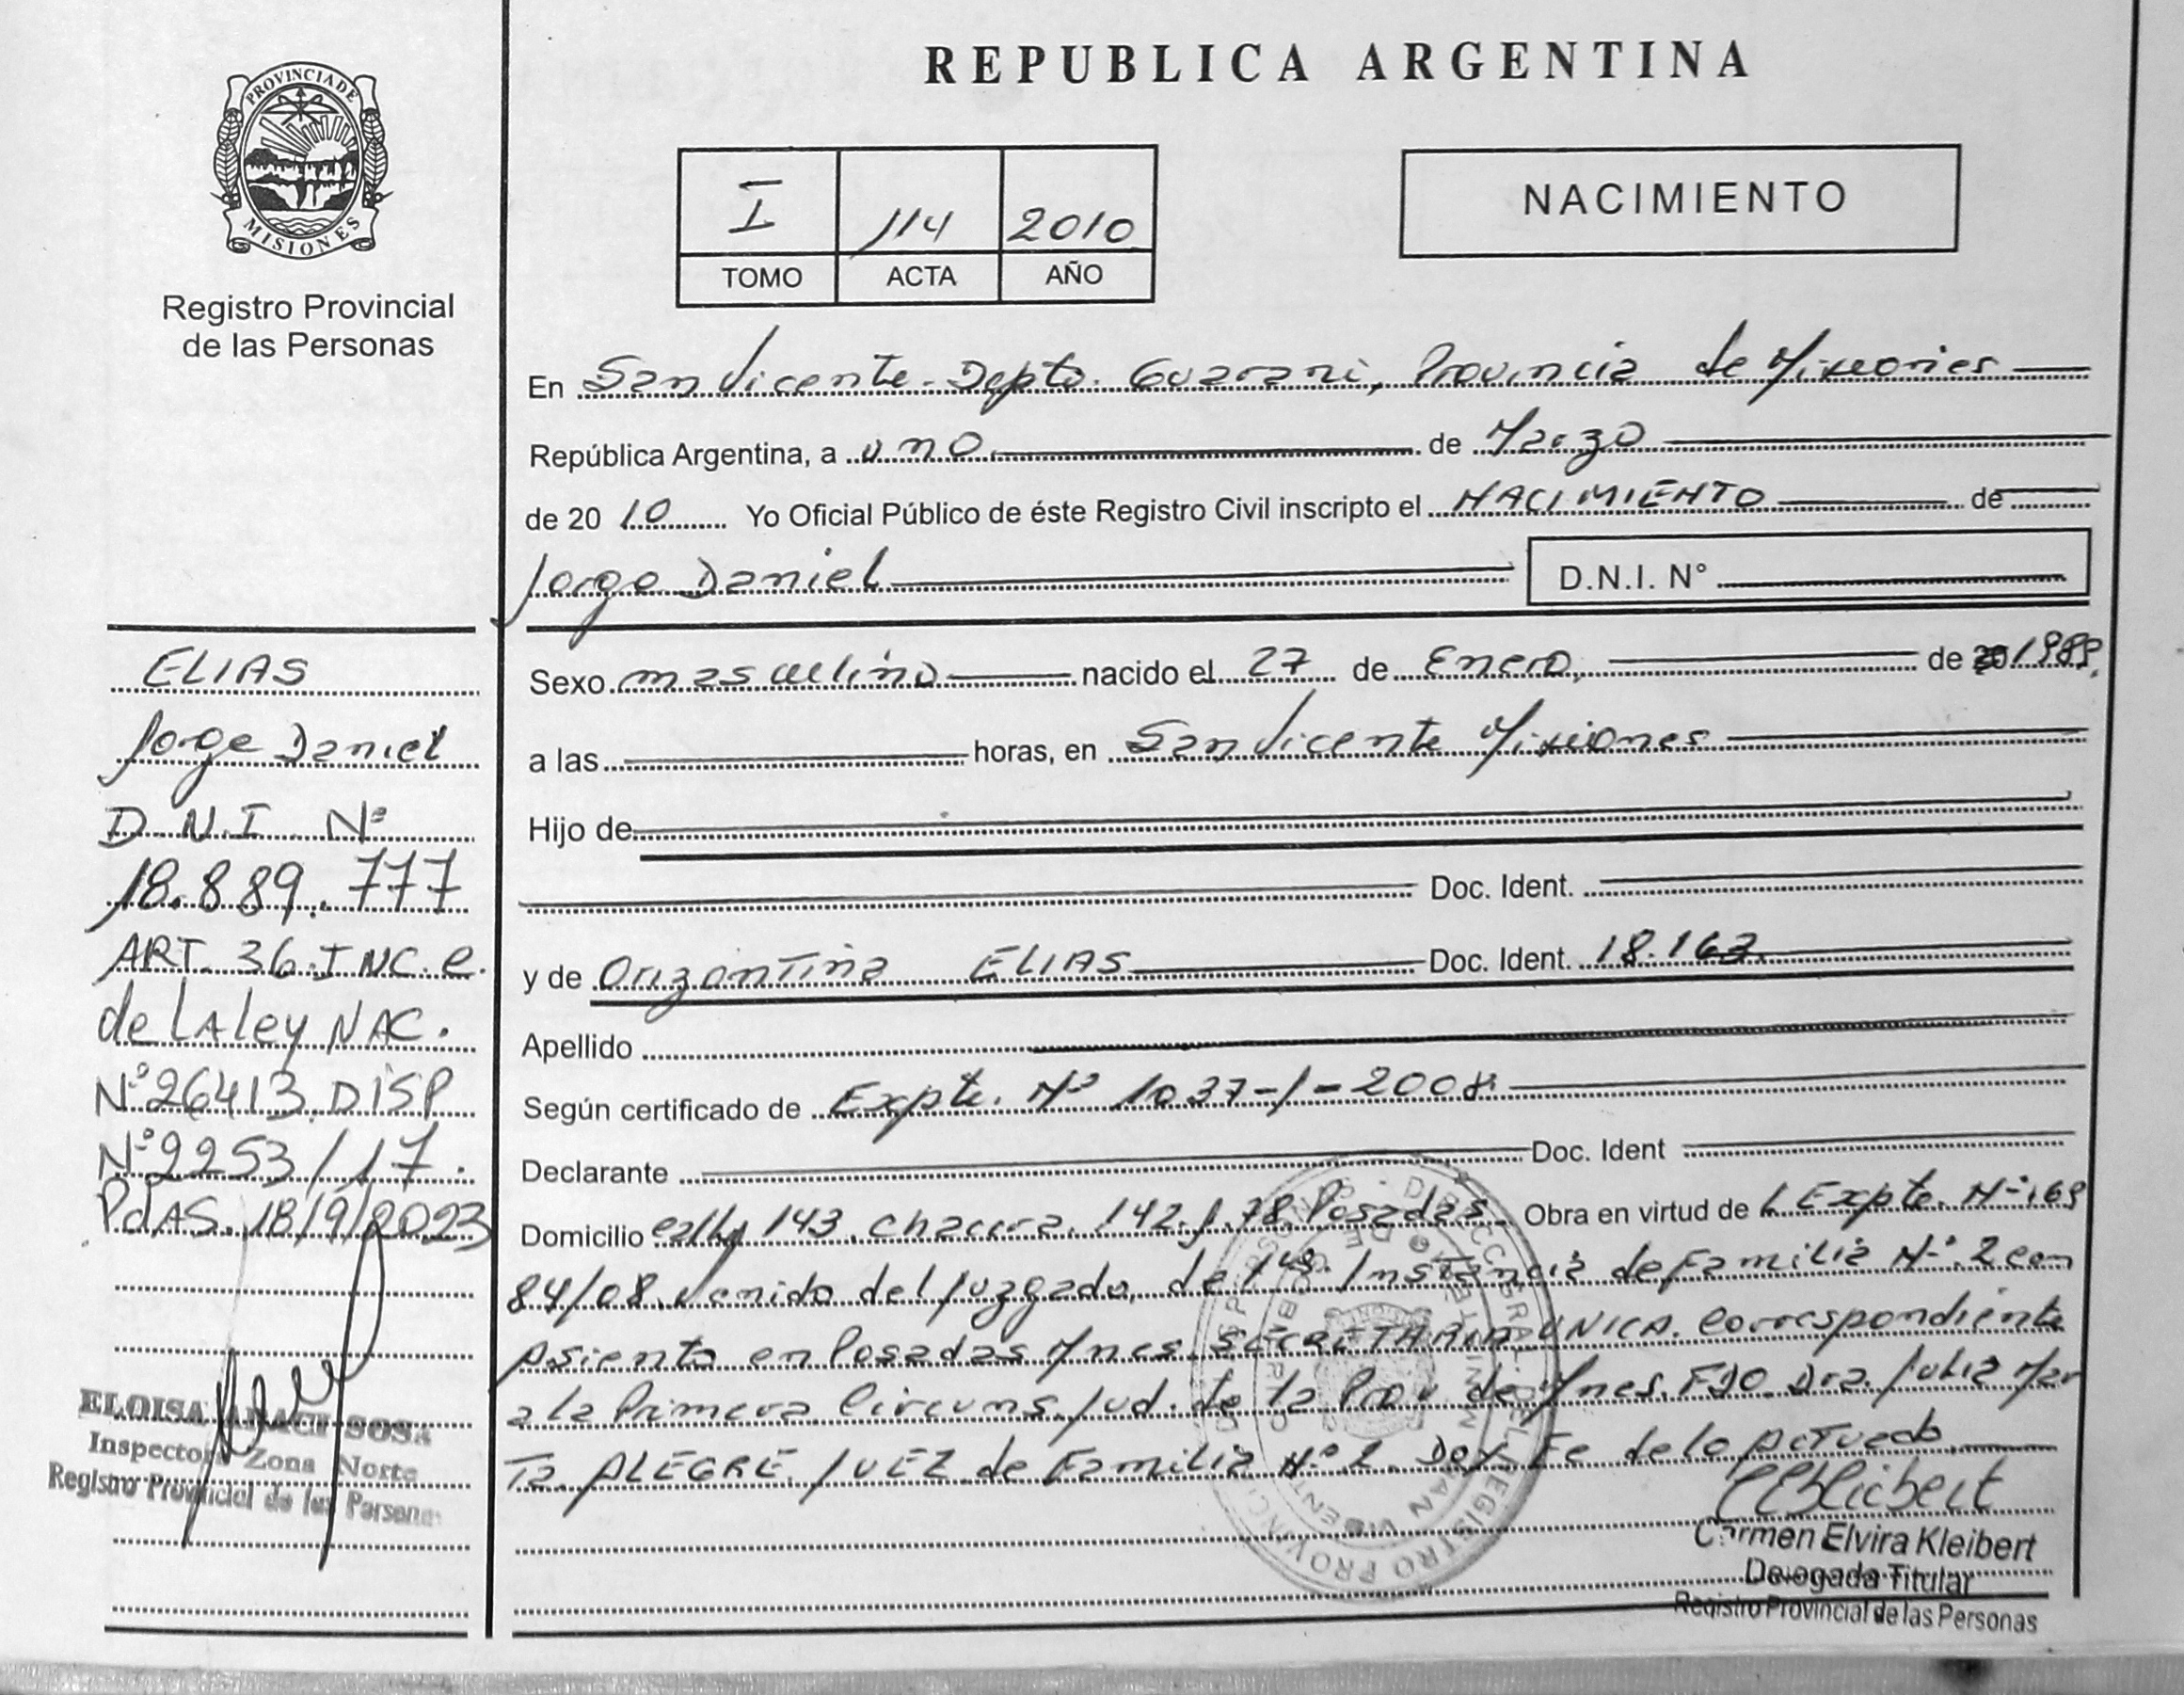 REPUBLICA ARGENTINA
PROVINCIA DE
MISIONES
Registro Provincial
de las Personas
I 114 2010
TOMO ACTA AÑO
NACIMIENTO
En San Vicente - Depto. Guarani, Provincia de Misiones
República Argentina, a uno de Marzo
de 20 10 Yo Oficial Público de éste Registro Civil inscripto el NACIMIENTO de
Jorge Daniel D.N.I. N°
Sexo masculino nacido el 27 de Enero, de 20 1989.
a las horas, en San Vicente Misiones
Hijo de
Doc. Ident.
y de Orizontina ELIAS Doc. Ident. 18.163
Apellido
Según certificado de Expte. Nº 1037-1-2008
Declarante Doc. Ident
Domicilio calle 143. chacra. 142. Posadas. Obra en virtud de Expte. Nº 169
84/08. Venido del Juzgado, de 1ra. Instancia de Familia Nº 2 con
Asiento en Posadas Mnes. SECRETARIA UNICA. Correspondiente
a la Primera Circuns. Jud. de la Prov. de Mnes. FDO. Dra. Julia Mar
Ta ALEGRE. JUEZ de Familia Nº 2. Doy Fe de lo Actuado.
Carmen Elvira Kleibert
Delegada Titular
Registro Provincial de las Personas
ELIAS
Jorge Daniel
D.N.I Nº
18.889.777
ART. 36. INC. e.
de LA ley NAC.
Nº 26413. DISP
Nº 2253/17.
PdAS. 18/9/2023
ELOISA ARACI SOSA
Inspectora Zona Norte
Registro Provincial de las Personas